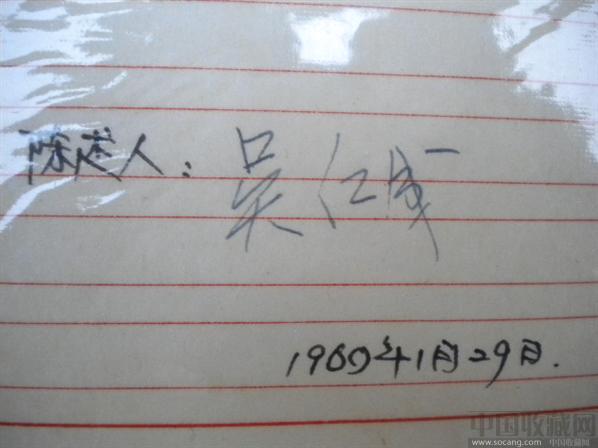 陈述人：吴仁成
1960年1月29日.
中国收藏网
www.socang.com 中国收藏网